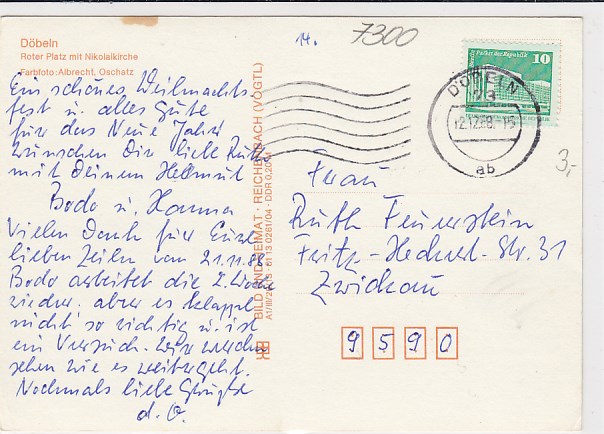 14.
7300
Döbeln
Roter Platz mit Nikolaikirche
Farbfoto: Albrecht, Oschatz
Ein schönes Weihnachts-
fest u. alles Gute
für das Neue Jahr
wünschen Dir liebe Ruth
mit Deinem Helmut
Bodo u. Hanna
Vielen Dank für Eure
lieben Zeilen vom 21.11.88
Bodo arbeitet die 2. Woche
wieder. aber es klappt
nicht so richtig u. ist
ein Versuch. Wir werden
sehen wie es weitergeht.
Nochmals liebe Grüße
d. O.
BILD UND HEIMAT · REICHENBACH (VOGTL)
A1/III/26/13 01 13 0261/04 · DDR 0,20 M
Palast der Republik
10
DÖBELN
73
12.12.88.-15
ab
3,-
Frau
Ruth Feuerstein
Fritz-Heckert-Str. 31
Zwickau
9590